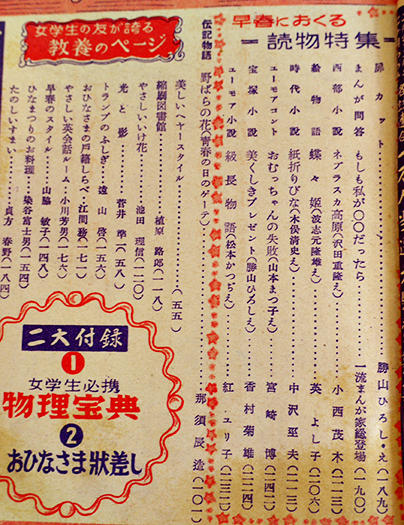 早春におくる
読物特集
扉カット……勝山ひろし・え(一八九)
まんが問答 もしも私が○○だったら……一流まんが家総登場(一九〇)
西部小説 ネブラスカ高原(沢田重隆え)……小西茂木(一一三)
絵物語 蝶々姫(波志元隆雄え)……英よし子(一〇六)
時代小説 紙折りびな(木俣清史え)……中沢巠夫(一二三)
ユーモアコント おむっちゃんの失敗(山本まつ子え)……宮崎博(一四二)
宝塚小説 美くしきプレゼント(勝山ひろしえ)……香村菊雄(一二四)
ユーモア小説 級長物語(松本かつぢえ)……紅ユリ子(一三二)
伝記物語 野ばらの花(青春の日のゲーテ)……那須辰造(一〇一)
女学生の友が誇る
教養のページ
美しいヘヤースタイル……(五五)
縮刷図書館……植原路郎(一一八)
やさしいいけ花……池田理信(一二〇)
光と影……菅井準(一五八)
トランプのふしぎ……遠山啓(一六五)
おひなさまの戸籍しらべ・江間務(一七二)
やさしい英会話ルーム・小川芳男(一七六)
早春のスタイル……山脇敏子(一四八)
ひなまつりのお料理……染谷富士男(一五四)
たのしいすまい……貞方春野(一八四)
二大付録
❶
女学生必携
物理宝典
❷
おひなさま状差し